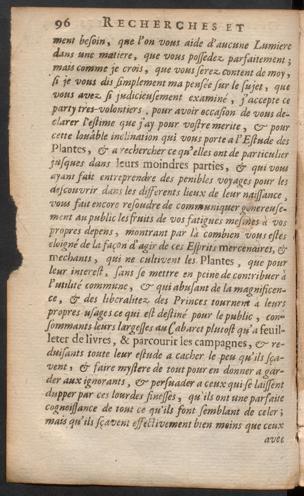 96 RECHERCHES ET
ment besoin, que l'on vous aide d'aucune Lumiere
dans une matiere, que vous possedez parfaitement;
mais comme je crois, que vous serez content de moy,
si je vous dis simplement ma pensée sur le sujet, que
vous avez si judicieusement examiné, j'accepte ce
party tres-volontiers, pour avoir occasion de vous de-
clarer l'estime que j'ay pour vostre merite, & pour
cette loüable inclination qui vous porte à l'Estude des
Plantes, & a rechercher ce qu'elles ont de particulier
jusques dans leurs moindres parties, & qui vous
ayant fait entreprendre des penibles voyages pour les
descouvrir dans les differents lieux de leur naissance,
vous fait encore resoudre de communiquer genereuse-
ment au public les fruits de vos fatigues mesmes à vos
propres depens, montrant par là combien vous estes
eloigné de la façon d'agir de ces Esprits mercenaires, &
mechants, qui ne cultivent les Plantes, que pour
leur interest, sans se mettre en peine de contribuer à
l'utilité commune, & qui abusant de la magnificen-
ce, & des liberalitez des Princes tournent à leurs
propres usages ce qui est destiné pour le public, con-
sommants leurs largesses au Cabaret plutost qu'à feuil-
leter de livres, & parcourir les campagnes, & re-
duisants toute leur estude a cacher le peu qu'ils sça-
vent, & faire mystere de tout pour en donner a gar-
der aux ignorants, & persuader a ceux qui se laissent
dupper par ces lourdes finesses, qu'ils ont une parfaite
cognoissance de tout ce qu'ils font semblant de celer;
mais qu'ils sçavent effectivement bien moins que ceux
avec